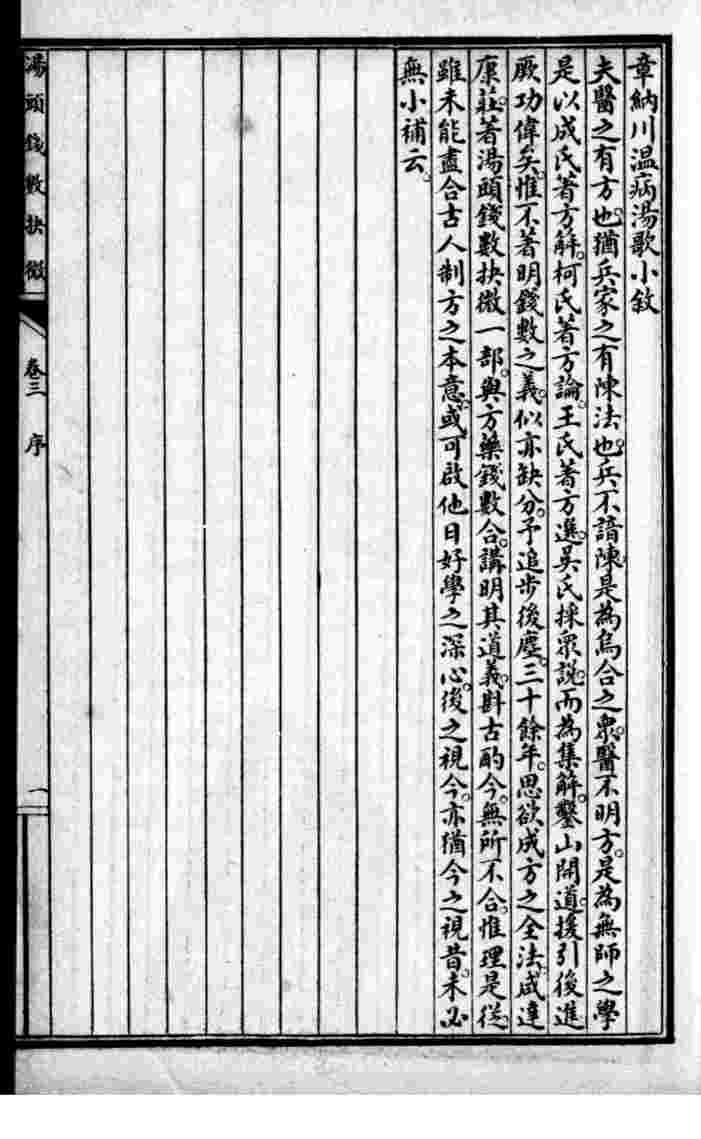 章納川温病湯歌小敘
夫醫之有方也。猶兵家之有陳法也。兵不諳陳。是為烏合之衆。醫不明方。是為無師之學
是以成氏著方解。柯氏著方論。王氏著方選。吳氏採衆說。而為集解。鑿山開道。援引後進
厥功偉矣。惟不著明錢數之義。似亦缺分。予追步後塵。三十餘年。思欲成方之全法。咸達
康莊。著湯頭錢數抉微一部。與方藥錢數合。講明其道義。斟古酌今。無所不合。惟理是從。
雖未能盡合古人制方之本意。或可啟他日好學之深心。後之視今。亦猶今之視昔。未必
無小補云。
湯頭錢數抉微 卷三 序 一